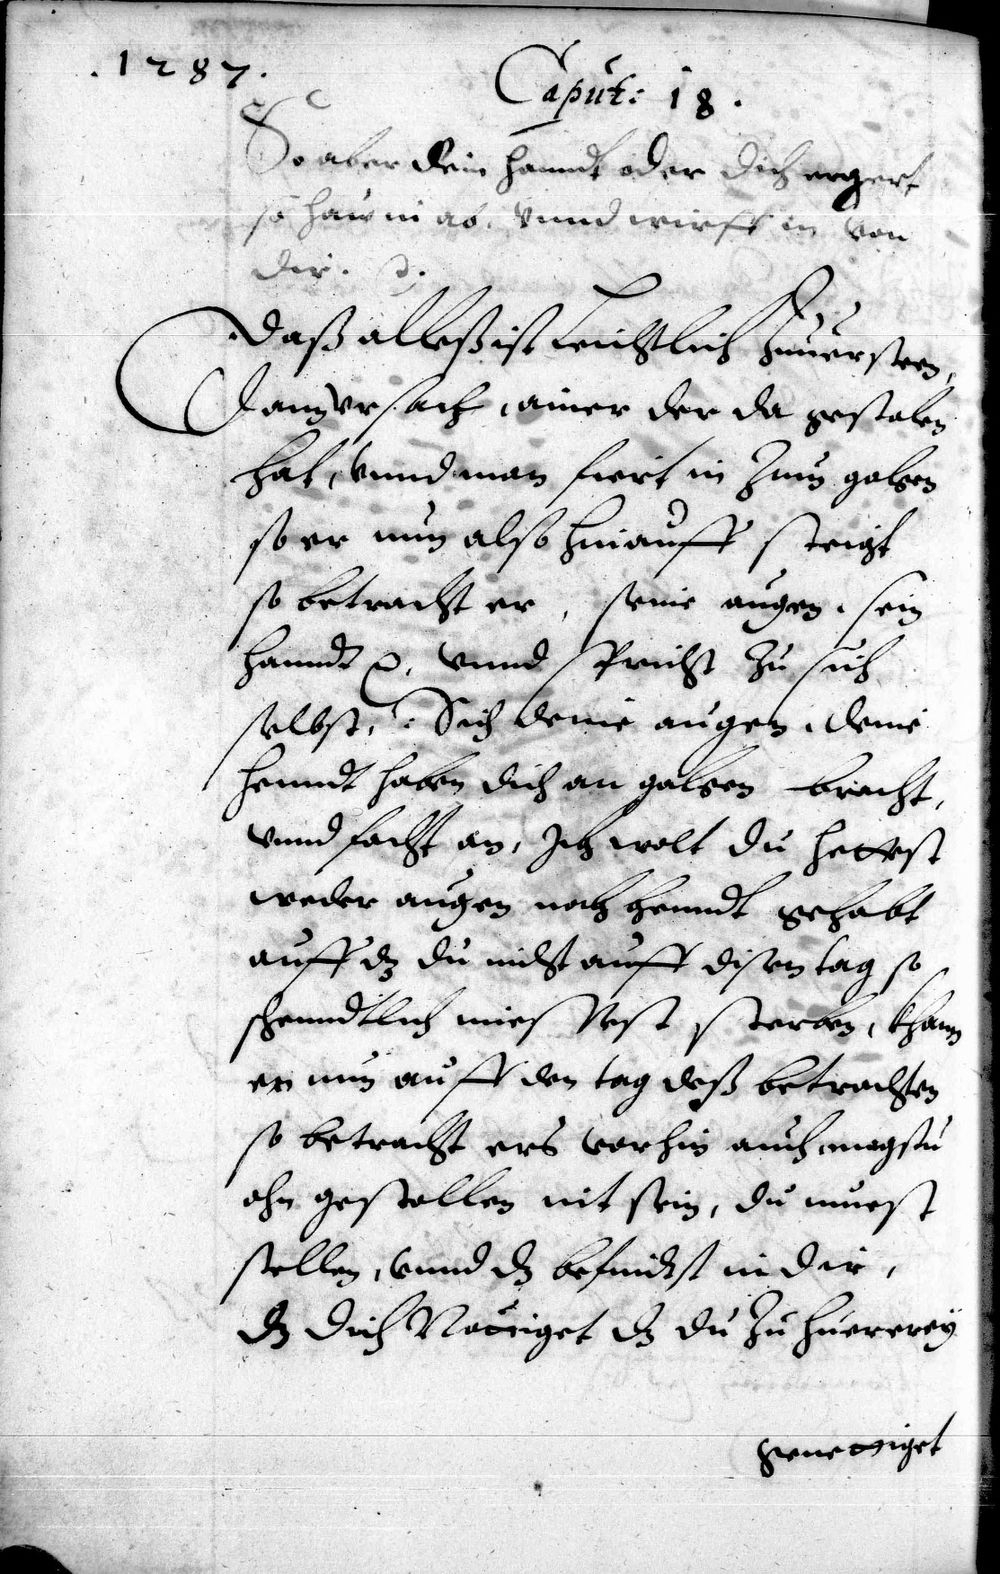 .1287.
Caput: 18.
So aber dein hanndt oder dich ergert
so haw in ab, vnnd wirff in von
dir. ꝛc.
Daß alles ist leichtlich zuuersteen,
Dann vrsach, ainer der da gestolen
hat, vnnd man fiert in zum galgen
so er nun also hinauff steigt
so betracht er, seine augen, sein
hanndt ꝛc, vnnd spricht zu sich
selbst,: Sich deine augen, deine
henndt haben dich an galgen bracht,
vnnd facht an, Ich wolt du hettest
weder augen noch henndt gehabt
auff dz du nicht auff disen tag so
schenndtlich miessest sterben, Khan
er nun auff den tag deß betrachten
so betracht ers vorhin auch, magstu
ohn gestollen nit sein, du muest
stellen, vnnd dz befindest in dir,
dz dich Nöttiget dz du zu huererey
genettiget